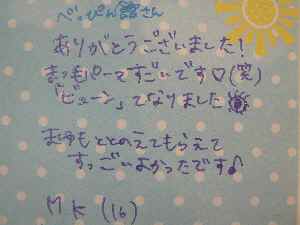 べっぴん館さん
ありがとうございました!
まつもパーマすごいです♡(笑)
「ビューン」てなりました
まゆもととのえてもらえて
すっごいよかったです♪
MK (16)